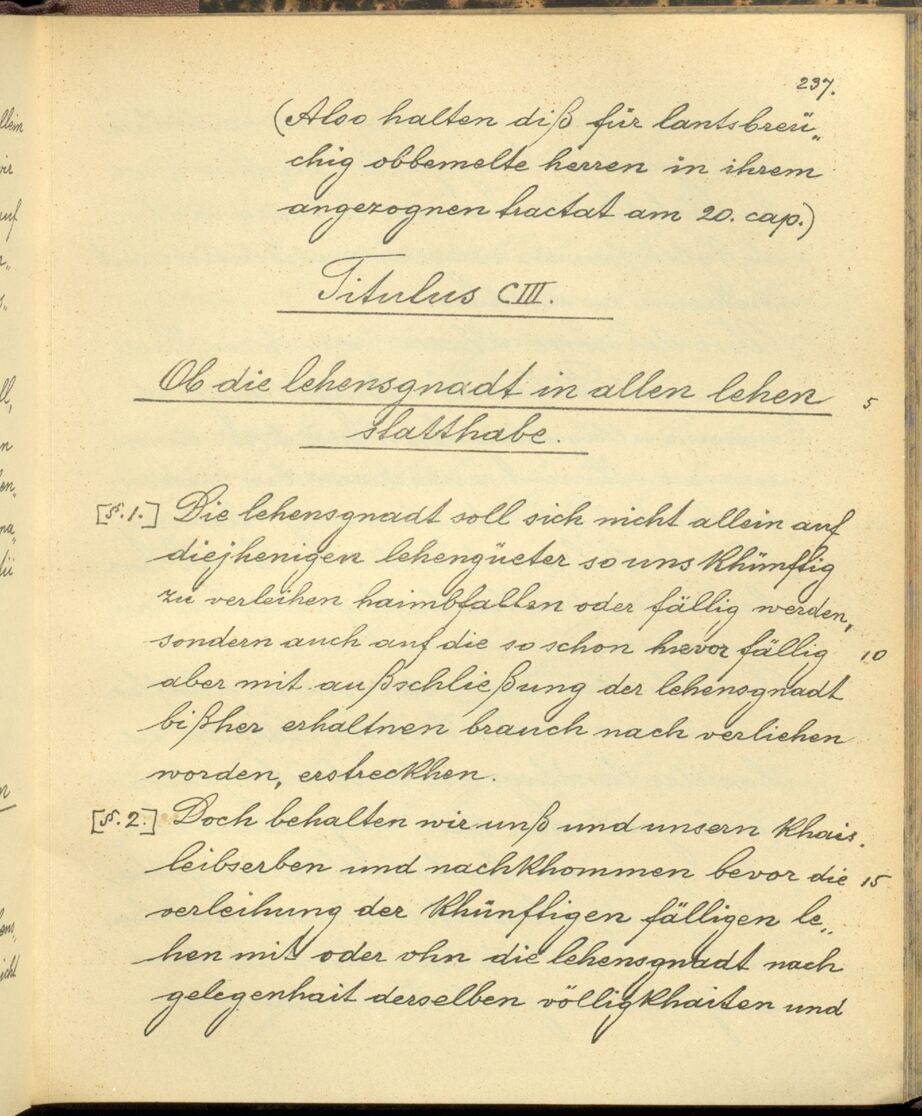 237.
(Also halten diß für lantsbreü„
chig obbemelte herren in ihrem
angezognen tractat am 20. cap.)
Titulus CIII.
Ob die lehensgnadt in allen lehen
5
statthabe
[§.1.] Die lehensgnadt soll sich nicht allein auf
diejhenigen lehengüeter so uns khünftig
zu verleihen haimbfallen oder fällig werden,
sondern auch auf die so schon hievor fällig 10
aber mit außschließung der lehensgnadt
bißher erhaltnen brauch nach verliehen
worden, erstreckhen.
[§.2.] Doch behalten wir unß und unsern khais.
leibserben und nachkhommen bevor die 15
verleihung der khünftigen fälligen le„
hen mit oder ohn die lehensgnadt nach
gelegenhait derselben völligkhaiten und